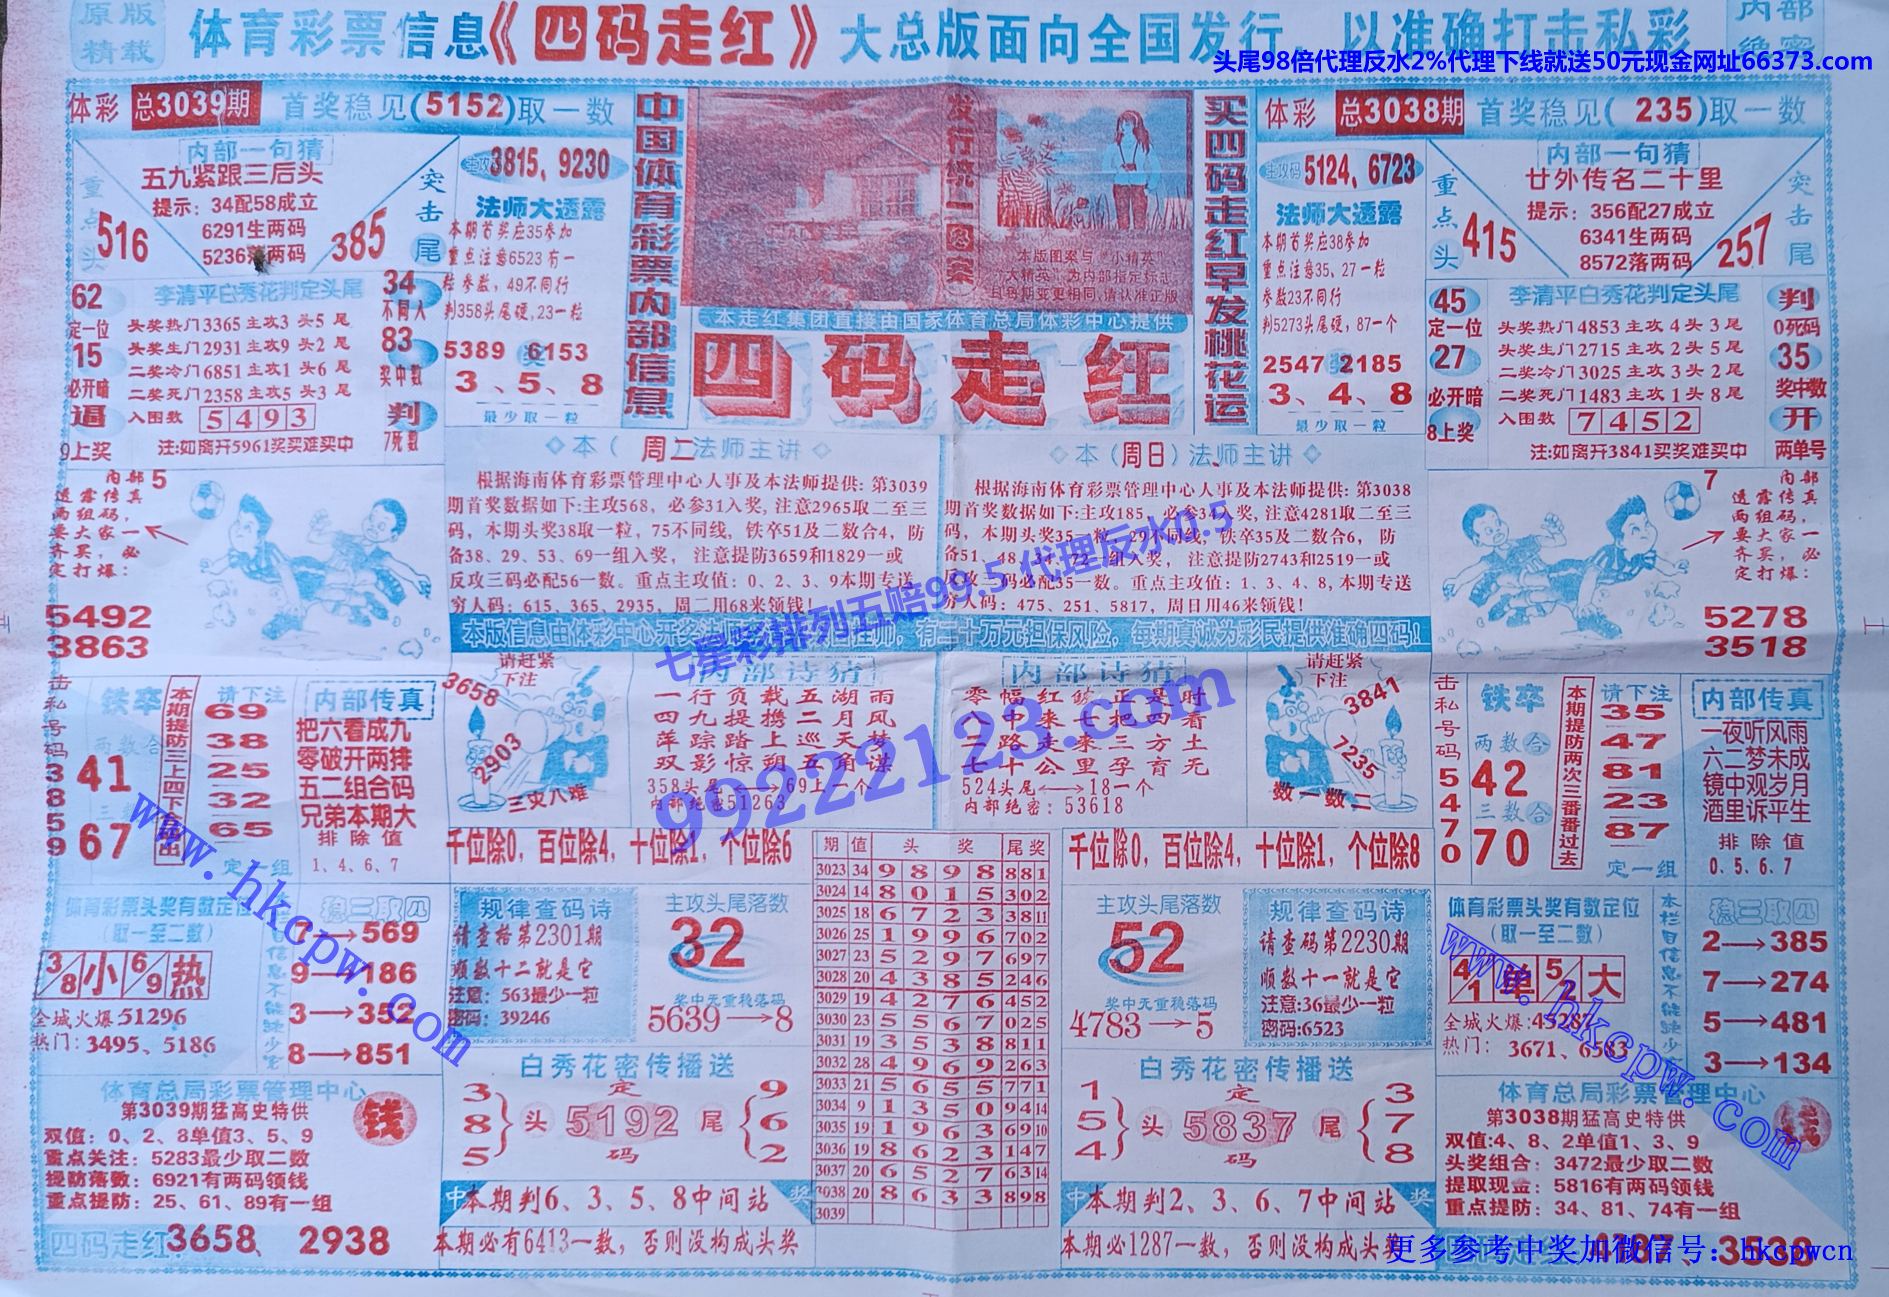 原版
精载
体育彩票信息《四码走红》大总版面向全国发行，以准确打击私彩
内部
绝密
头尾98倍代理反水2%代理下线就送50元现金网址66373.com
体彩 总3039期 首奖稳见(5152)取一数
内部一句猜
五九紧跟三后头
提示：34配58成立
6291生两码
5236落两码
重点头
516
突击尾
385
主攻码3815、9230
法师大透露
本期首奖应35参加
重点注意6523有一
粒参数，49不同行
判358头尾硬,23一粒
5389奖6153
3、5、8
最少取一粒
62
定一位
15
必开暗
逼
9上奖
李清平白秀花判定头尾
头奖热门3365主攻3头5尾
头奖生门2931主攻9头2尾
二奖冷门6851主攻1头6尾
二奖死门2358主攻5头3尾
入围数 5493
注:如离开5961奖买难买中
34
不同入
83
奖中数
判
7死数
中国体育彩票内部信息
发行统一图案
本版图案与“小精英”
“大精英”为内部指定标志
且每期变更相同,请认准正版
本走红集团直接由国家体育总局体彩中心提供
四码走红
买四码走红早发桃花运
体彩 总3038期 首奖稳见(235)取一数
主攻码5124、6723
法师大透露
本期首奖应38参加
重点注意35、27一粒
参数23不同行
判5273头尾硬，87一个
2547奖2185
3、4、8
最少取一粒
内部一句猜
廿外传名二十里
提示：356配27成立
6341生两码
8572落两码
重点头
415
突击尾
257
45
定一位
27
必开暗
8上奖
李清平白秀花判定头尾
头奖热门4853主攻4头3尾
头奖生门2715主攻2头5尾
二奖冷门3025主攻3头2尾
二奖死门1483主攻1头8尾
入围数 7452
注:如离开3841买奖难买中
判
0死码
35
奖中数
开
两单号
内部5
透露传真
两组码，
要大家一
齐买，必
定打爆：
5492
3863
◇本（周二）法师主讲◇
根据海南体育彩票管理中心人事及本法师提供：第3039
期首奖数据如下:主攻568，必参31入奖，注意2965取二至三
码，本期头奖38取一粒，75不同线，铁卒51及二数合4，防
备38、29、53、69一组入奖，注意提防3659和1829一或
反攻三码必配56一数。重点主攻值：0、2、3、9本期专送
穷人码：615、365、2935，周二用68来领钱！
◇本（周日）法师主讲◇
根据海南体育彩票管理中心人事及本法师提供：第3038
期首奖数据如下:主攻185，必参34入奖，注意4281取二至三
码，本期头奖35一粒，29不同线，铁卒35及二数合6，防
备51、48、34、72一组入奖，注意提防2743和2519一或
反攻三码必配35一数。重点主攻值：1、3、4、8,本期专送
穷人码：475、251、5817，周日用46来领钱！
7
内部
透露传真
两组码，
要大家一
齐买，必
定打爆：
5278
3518
七星彩排列五赔99.5 代理反水0.5
99222123.com
击私号码38559
铁卒
两数合
41
三数合
67
请下注
69
38
25
32
65
定一组
内部传真
把六看成九
零破开两排
五二组合码
兄弟本期大
排除值
1、4、6、7
请赶紧
下注
3658
2903
三灾八难
内部诗猜
一行负载五湖雨
四九提携二月风
萍踪踏上巡天梦
双影惊朔五角谋
358头尾⟷69上一个
内部绝密51263
内部诗猜
524头尾⟷18一个
内部绝密：53618
请赶紧
下注
3841
7235
数一数二
击私号码5470
铁卒
两数合
42
三数合
70
本期提防两次三番番过去
请下注
35
47
81
23
87
定一组
内部传真
一夜听风雨
六二梦未成
镜中观岁月
酒里诉平生
排除值
0、5、6、7
千位除0，百位除4，十位除1，个位除6
千位除0，百位除4，十位除1，个位除8
期 值 头奖 尾奖
3023 34 9898 881
3024 14 8015 302
3025 18 6723 3811
3026 25 1996 702
3027 23 5297 697
3028 20 4385 246
3029 19 4276 452
3030 23 5567 025
3031 19 3538 811
3032 28 4969 263
3033 21 5655 771
3034 9 1350 9414
3035 19 1963 6910
3036 19 8623 147
3037 20 6527 6314
3038 20 8633 898
3039
体育彩票头奖有数定位
（取一至二数）
3/8 小 6/9 热
全城火爆51296
热门：3495、5186
稳三取四
7→569
9→186
3→352
8→851
规律查码诗
请查格第2301期
顺数十二就是它
注意：563最少一粒
密码：39246
主攻头尾落数
32
奖中无重稳落码
5639→8
主攻头尾落数
52
奖中无重稳落码
4783→5
规律查码诗
请查码第2230期
顺数十一就是它
注意:36最少一粒
密码:6523
体育彩票头奖有数定位
（取一至二数）
4/1 单 5/2 大
热门：3671、6583
稳三取四
2→385
7→274
5→481
3→134
体育总局彩票管理中心
第3039期猛高史特供
双值：0、2、8单值3、5、9
重点关注：5283最少取二数
提防落数：6921有两码领钱
重点提防：25、61、89有一组
钱
四码走红：3658、2938
白秀花密传播送
3
8
5
头
定
5192
码
尾
9
6
2
中本期判6、3、5、8中间站奖
本期必有6413一数，否则没构成头奖
白秀花密传播送
1
5
4
头
定
5837
码
尾
3
7
8
中本期判2、3、6、7中间站奖
本期必1287一数，否则没构成头奖
体育总局彩票管理中心
第3038期猛高史特供
双值:4、8、2单值1、3、9
头奖组合：3472最少取二数
提取现金：5816有两码领钱
重点提防：34、81、74有一组
钱
4187、3538
www.hkcpw.com
www.hkcpw.com
更多参考中奖加微信号：hkcpwcn